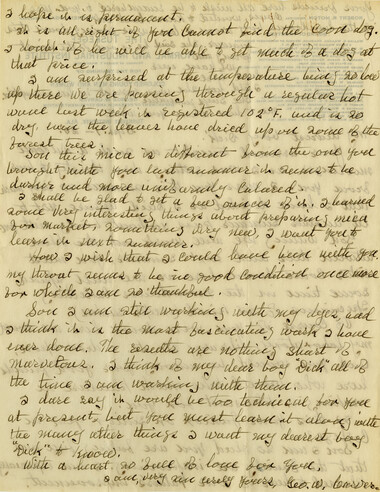 I hope it is permanent.
It is all right if Ford cannot find the coon dog.
I doubt if he will be able to get much of a dog at
that price.
I am surprised at the temperature being so low
up there we are passing through a regular hot
wave last week it registered 102°F, and is so
dry, even the leaves have dried up on some of the
forest trees.
Son this mica is different from the one you
brought with you last summer it seems to be
darker and more uniformly colored.
I shall be glad to get a few ounces of it. I learned
some very interesting things about preparing mica
for market, something very new, I want you to
learn it next summer.
How I wish that I could have been with you.
my throat seems to be in good condition once more
for which I am so thankful.
Son I am still working with my dyes, and
I think it is the most fascinating work I have
ever done. The results are nothing short of
marvelous. I think of my dear boy "Dick" all of
the time I am working with them.
I dare say it would be too technical for you
at present, but you must learn it along with
the many other things I want my dearest boy
"Dick" to know.
With a heart so full of love for you,
I am, very sincerely yours, Geo. W. Carver.